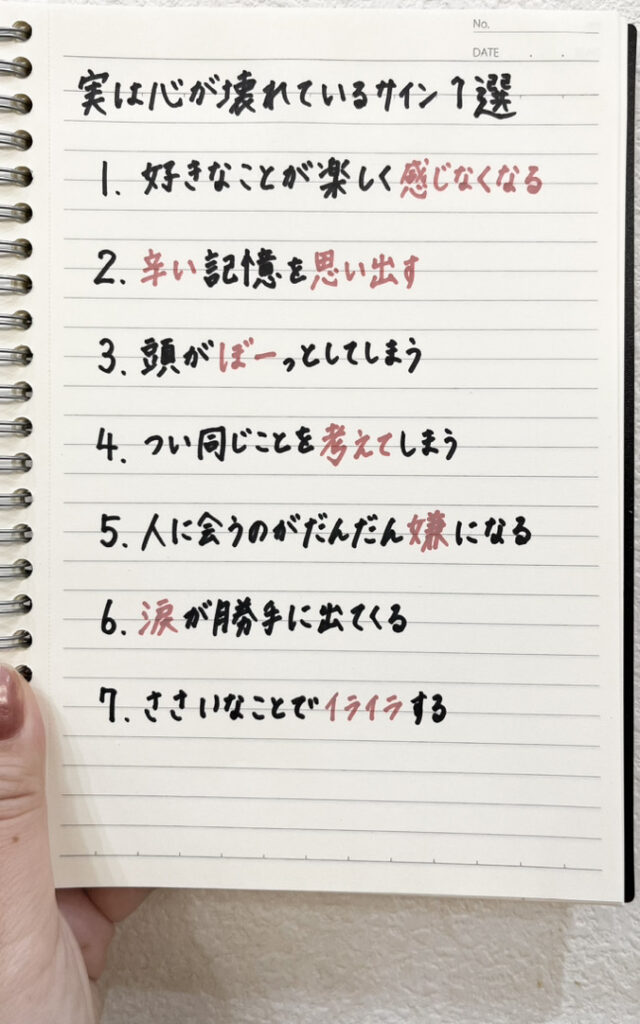 No.
DATE . .
実は心が壊れているサイン7選
1. 好きなことが楽しく感じなくなる
2. 辛い記憶を思い出す
3. 頭がぼーっとしてしまう
4. つい同じことを考えてしまう
5. 人に会うのがだんだん嫌になる
6. 涙が勝手に出てくる
7. ささいなことでイライラする